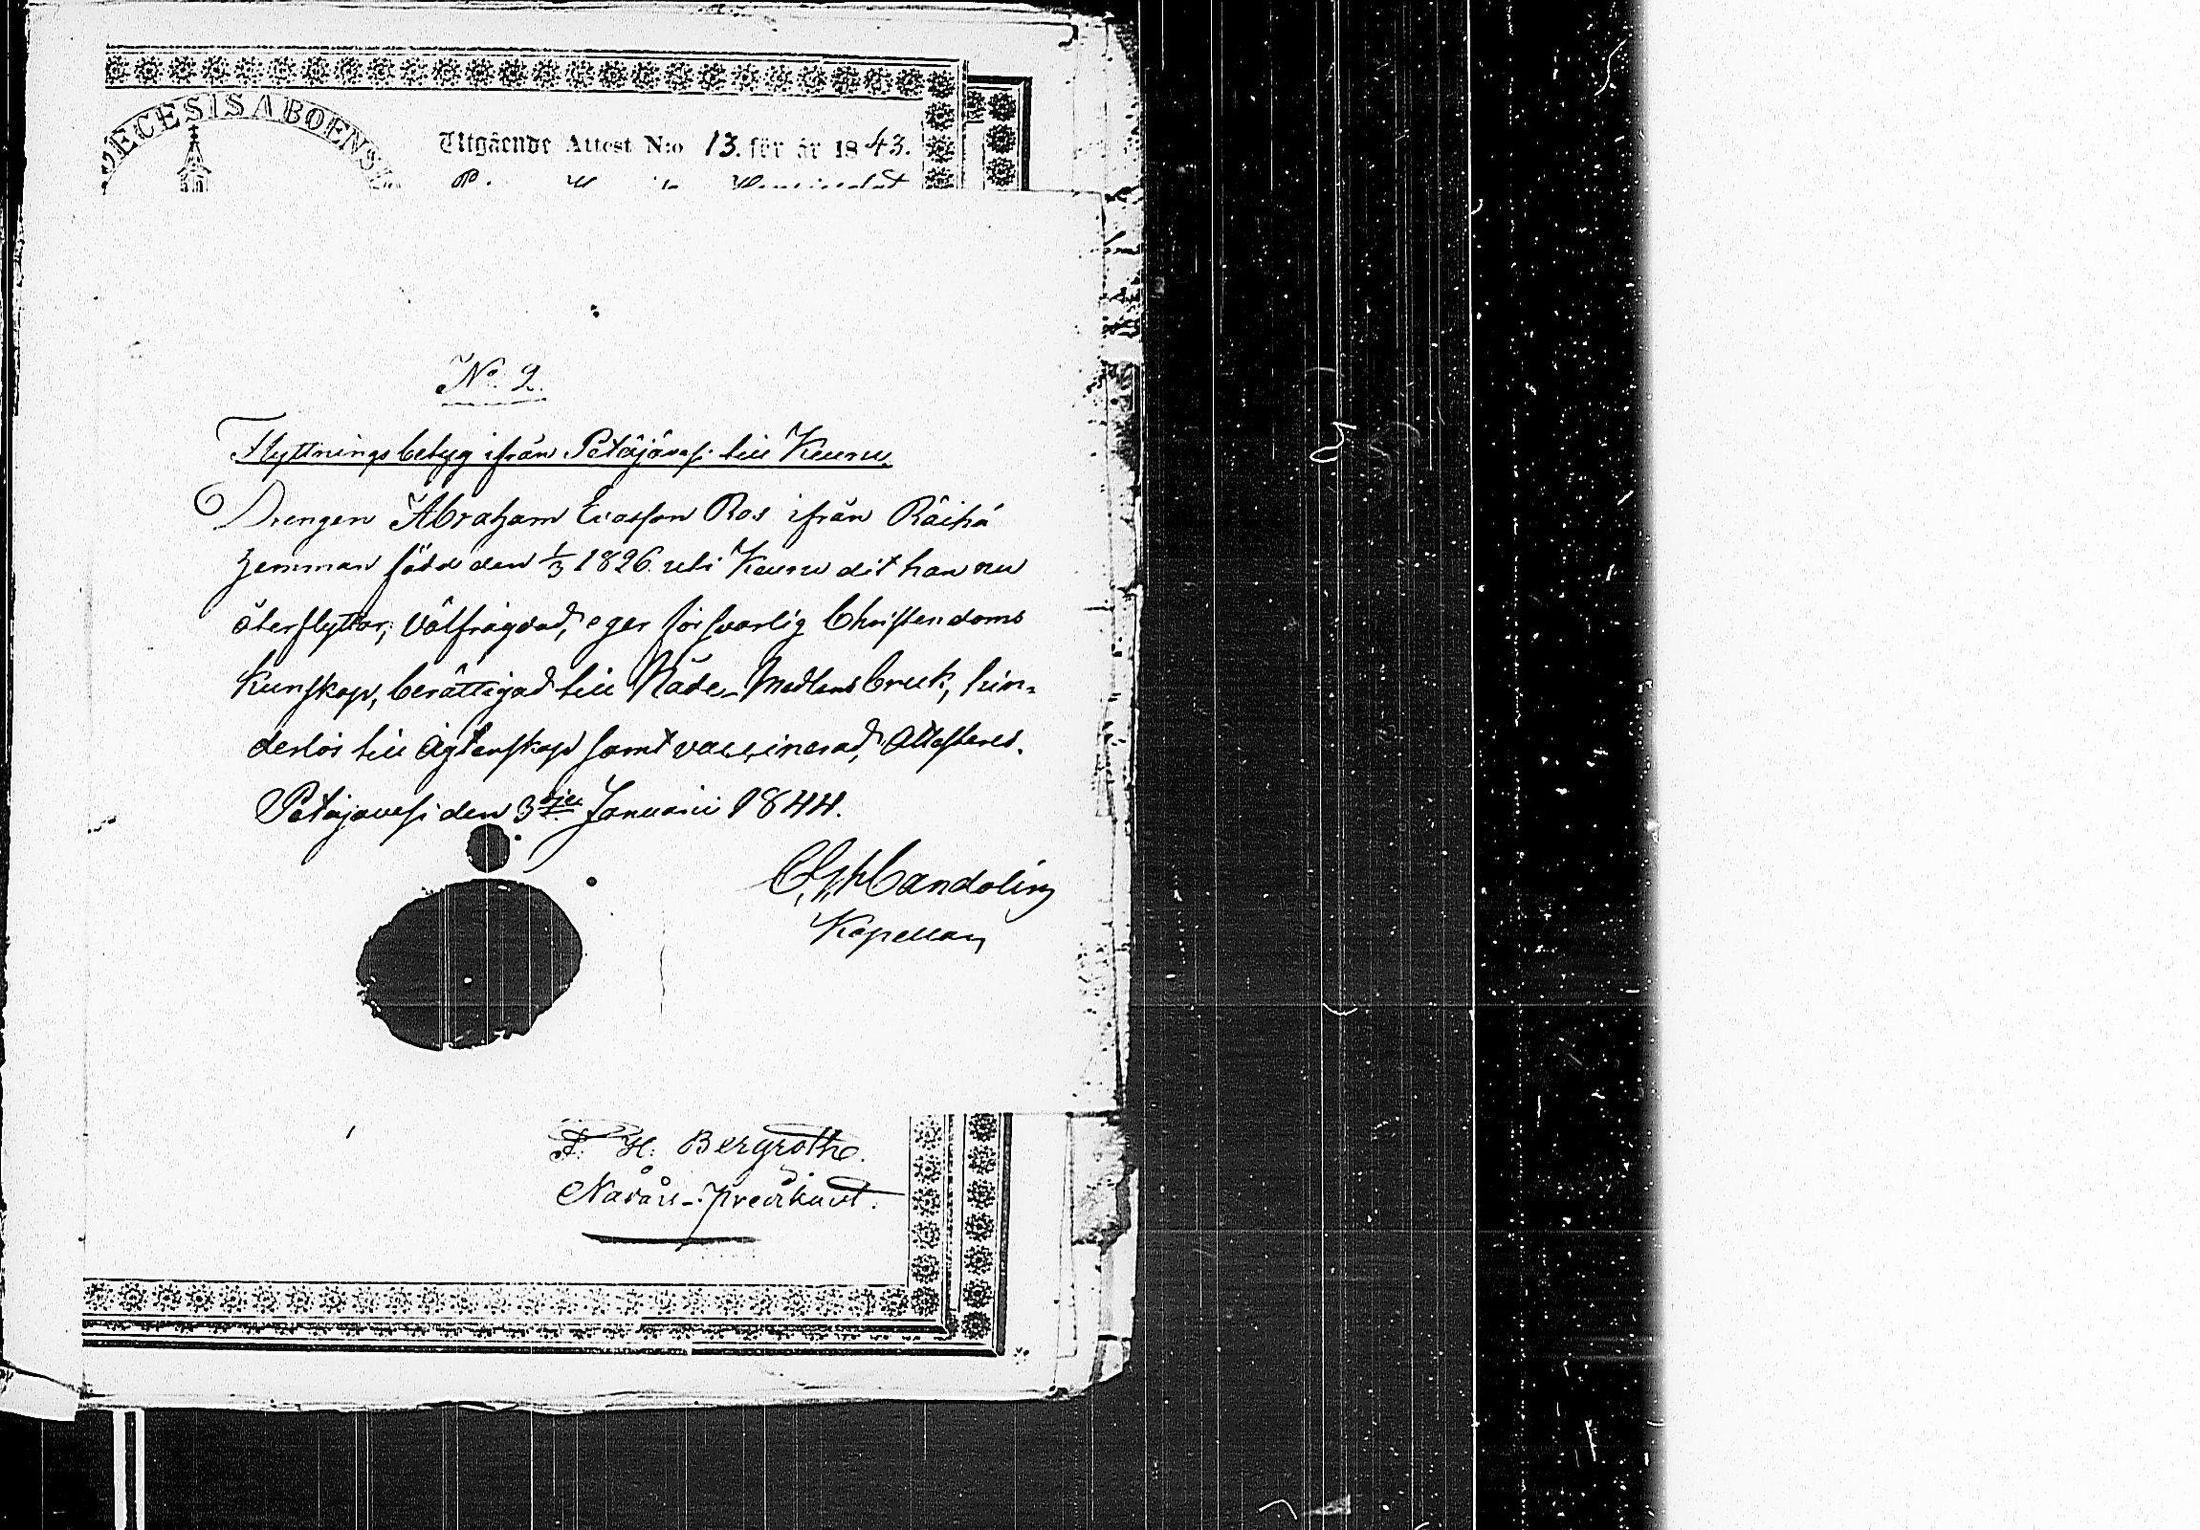 DIECESIS ABOENSIS
Utgående Attest N:o 13. för år 1843.
No 2.
Flyttningsbetyg ifrån Petäjävesi till Keuru.
Drengen Abraham Ersson Ros ifrån Räihä
hemman född den 1/3 1826 uti Keuru dit han nu
återflyttar; välfrägdad, eger försvarlig Christendoms
kunskap, berättigad till Nåde-Medlens bruk, hin-
derlös till ägtenskap samt vaccinerad, Attesteras.
Petäjävesi den 3dje Januarii 1844.
Candolin
Kapellan
F. H. Bergroth.
Nådårs-predikant.